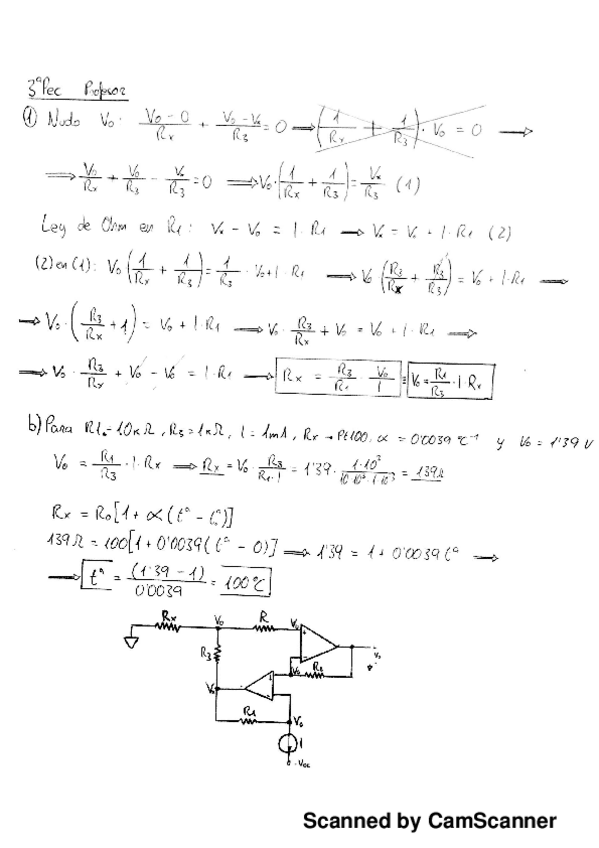 3ªPec Profesor
① Nudo Vo: (Vo - 0)/Rx + (Vo - Vx)/R3 = 0 → (1/Rx + 1/R3) · Vo = 0 →
→ Vo/Rx + Vo/R3 - Vx/R3 = 0 → Vo · (1/Rx + 1/R3) = Vx/R3 (1)
Ley de Ohm en R1: Vx - Vo = I · R1 → Vx = Vo + I · R1 (2)
(2) en (1): Vo (1/Rx + 1/R3) = 1/R3 · Vo + I · R1 → Vo (R3/Rx + R3/R3) = Vo + I · R1 →
→ Vo · (R3/Rx + 1) = Vo + I · R1 → Vo · R3/Rx + Vo = Vo + I · R1 →
→ Vo · R3/Rx + Vo - Vo = I · R1 → Rx = R3/R1 Vo/I = Vo = R1/R3 · I · Rx
b) Para R1 = 10KΩ, R3 = 1KΩ, I = 1mA, Rx → Pt100, α = 0'0039 ºC⁻¹ y Vo = 1'39 V
Vo = R1/R3 · I · Rx → Rx = Vo · R3/(R1 · I) = 1'39 · 1·10³/(10·10³ · 1·10⁻³) = 139Ω
Rx = Ro [1 + α (tª - tªo)]
139Ω = 100 [1 + 0'0039 (tª - 0)] → 1'39 = 1 + 0'0039 tª →
→ tª = (1'39 - 1)/0'0039 = 100ºC
Rx Vo R Vo
+
-
Vo
R3
Vo R2
Vo
R1 Vo
I
-Vcc
Scanned by CamScanner